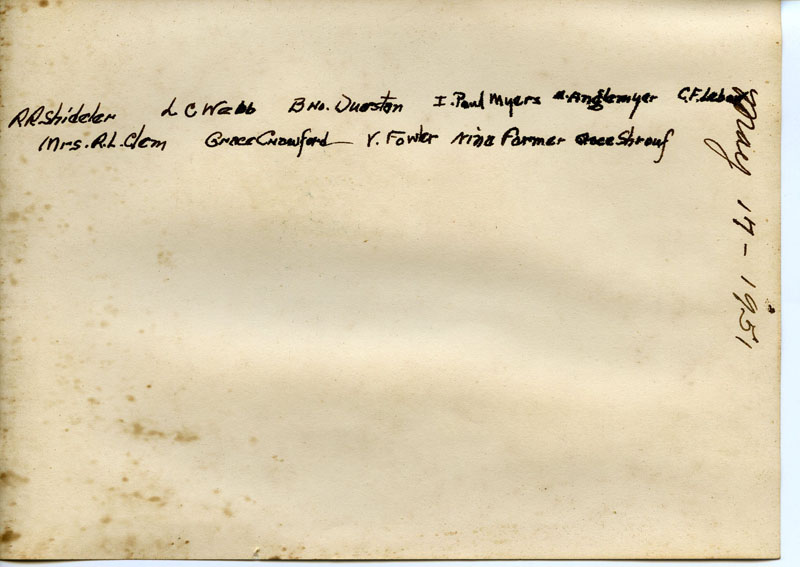 R.R. Shideler L C Webb Bro. Overston I. Paul Myers Anglemyer C.F. Leber
Mrs. R.L. Clem Grace Crawford V. Fowler Nina Farmer Grace Shrouf
May 17 - 1951